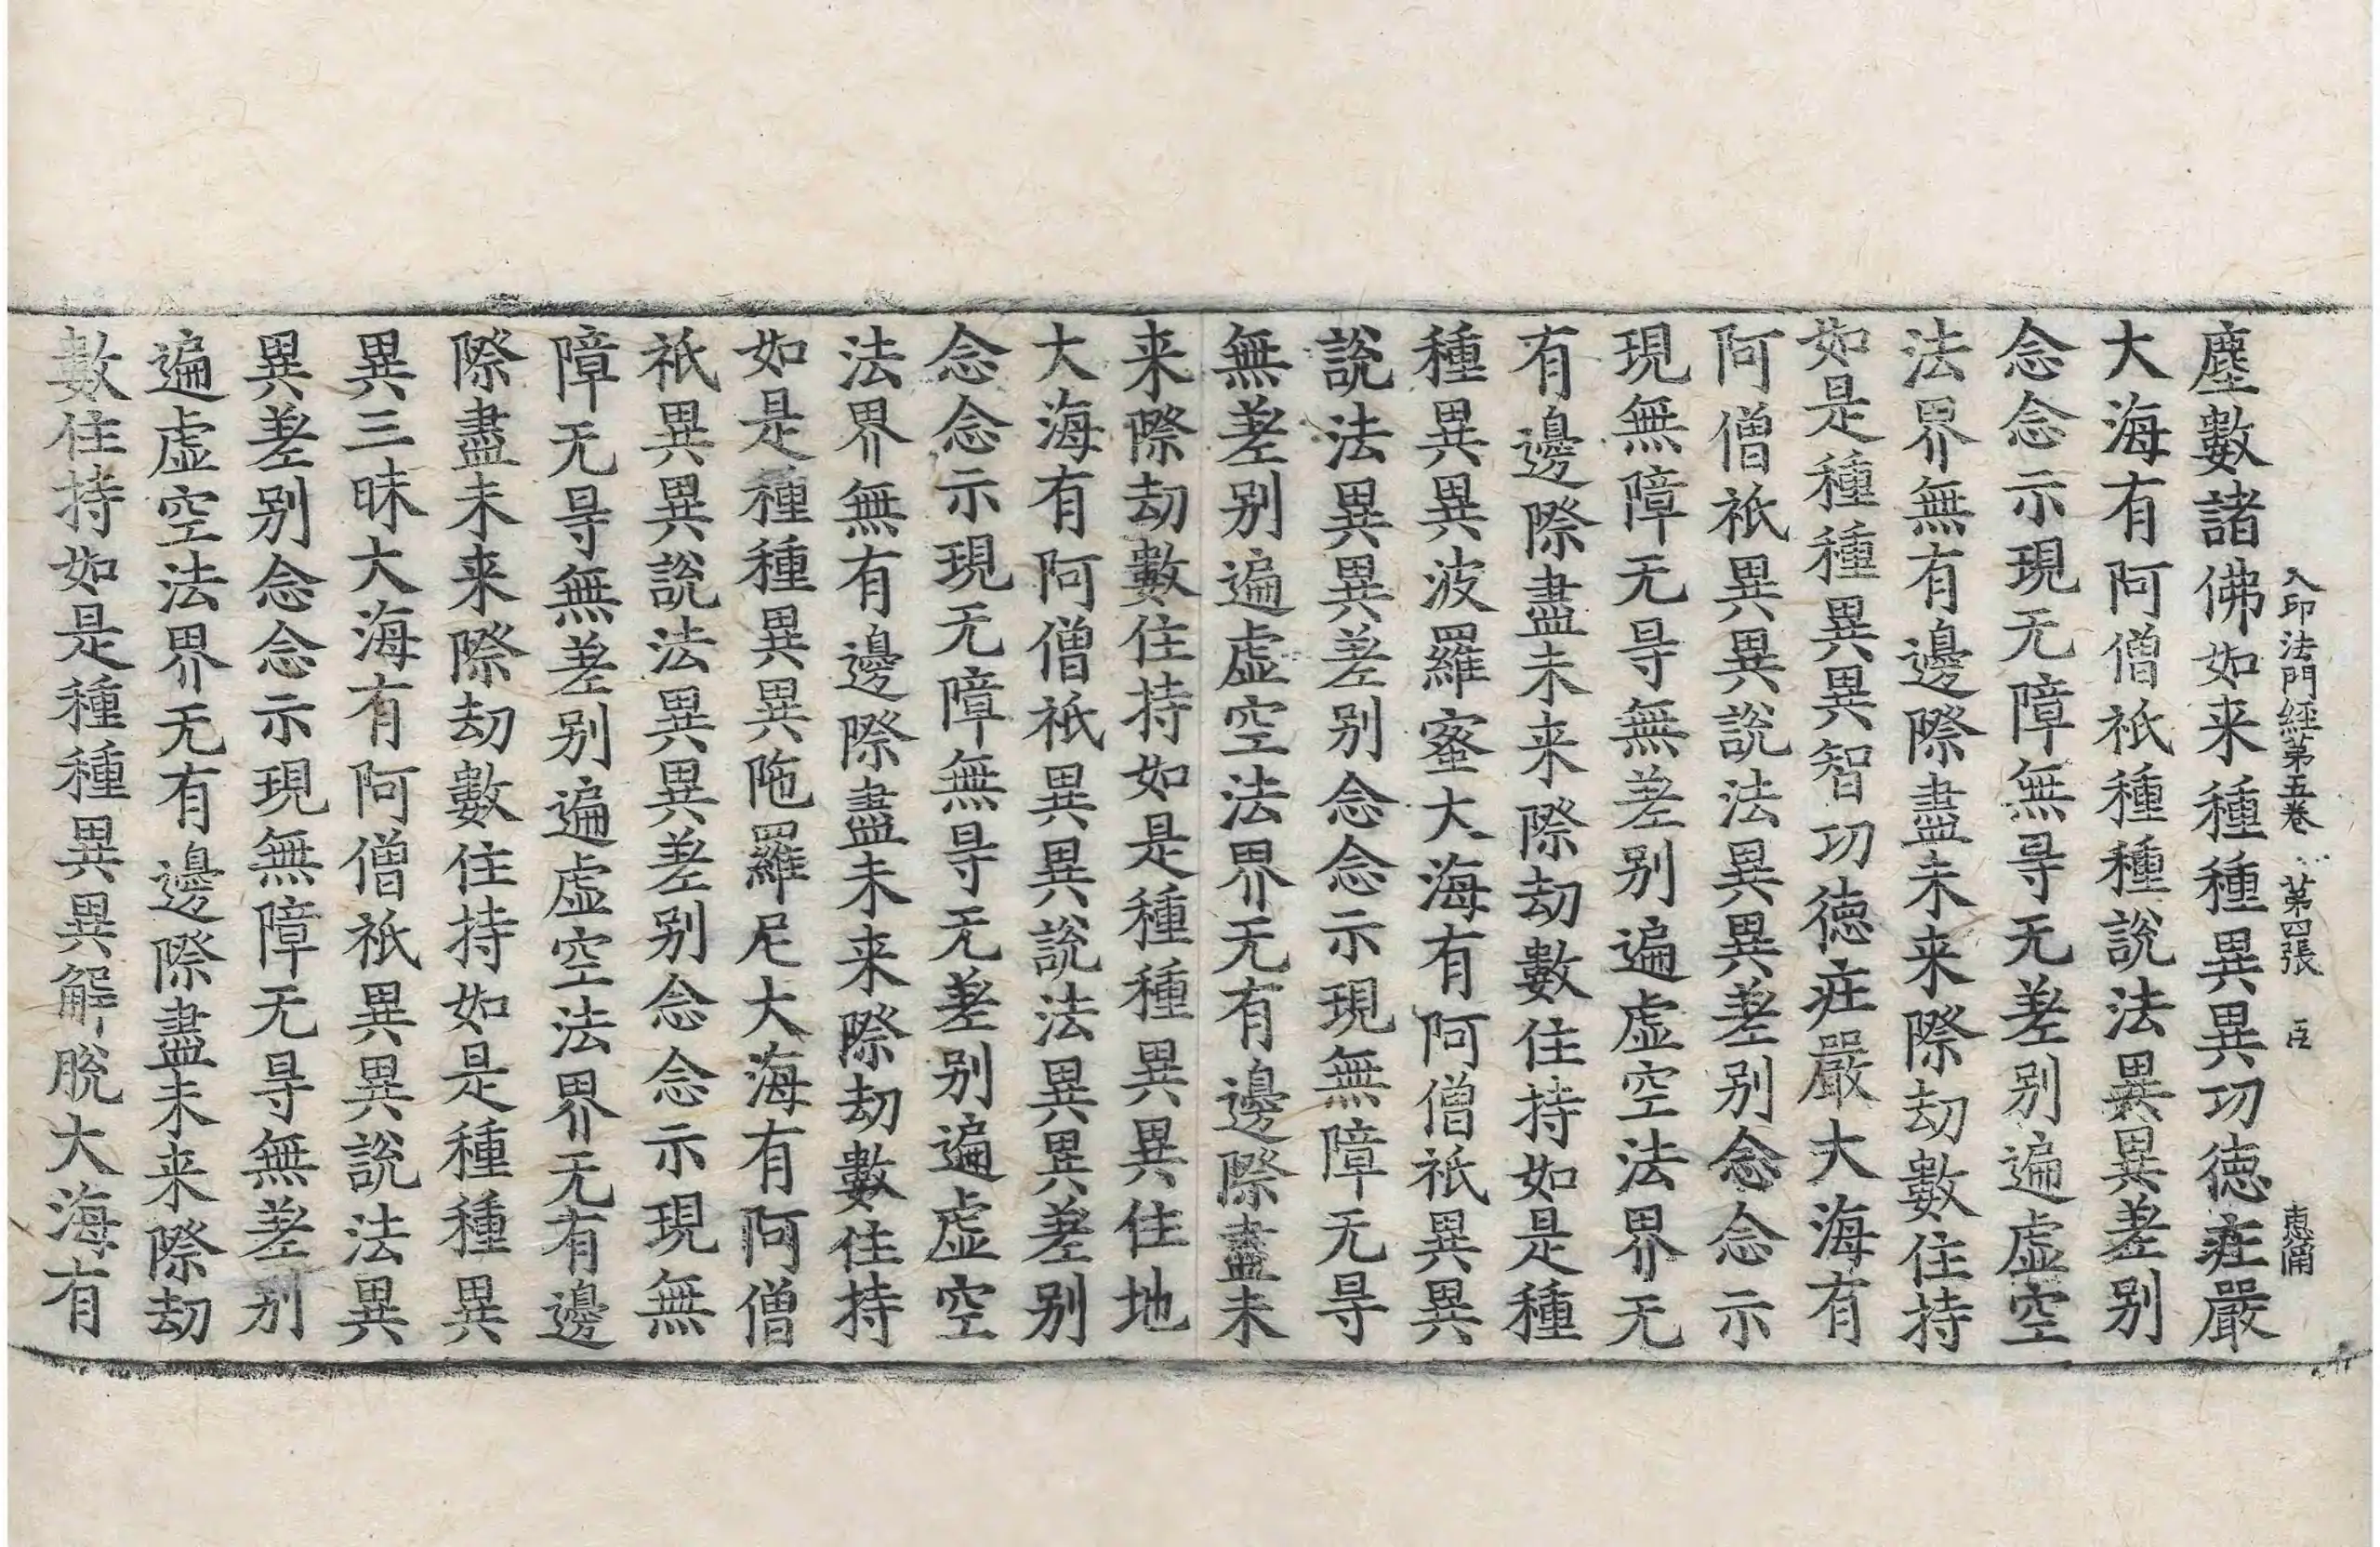 入印法門經第五卷 第四張 臣 惠甫
塵數諸佛如来種種異異功德莊嚴
大海有阿僧祇種種說法異異差别
念念示現无障無㝵无差别遍虛空
法界無有邊際盡未来際劫數住持
如是種種異異智功德莊嚴大海有
阿僧祇異異說法異異差别念念示
現無障无㝵無差别遍虛空法界无
有邊際盡未来際劫數住持如是種
種異異波羅蜜大海有阿僧祇異異
說法異異差别念念示現無障无㝵
無差别遍虛空法界无有邊際盡未
来際劫數住持如是種種異異住地
大海有阿僧祇異異說法異異差别
念念示現无障無㝵无差别遍虛空
法界無有邊際盡未来際劫數住持
如是種種異異陁羅尼大海有阿僧
祇異異說法異異差别念念示現無
障无㝵無差别遍虛空法界无有邊
際盡未来際劫數住持如是種種異
異三昧大海有阿僧祇異異說法異
異差别念念示現無障无㝵無差别
遍虛空法界无有邊際盡未来際劫
數住持如是種種異異解脫大海有